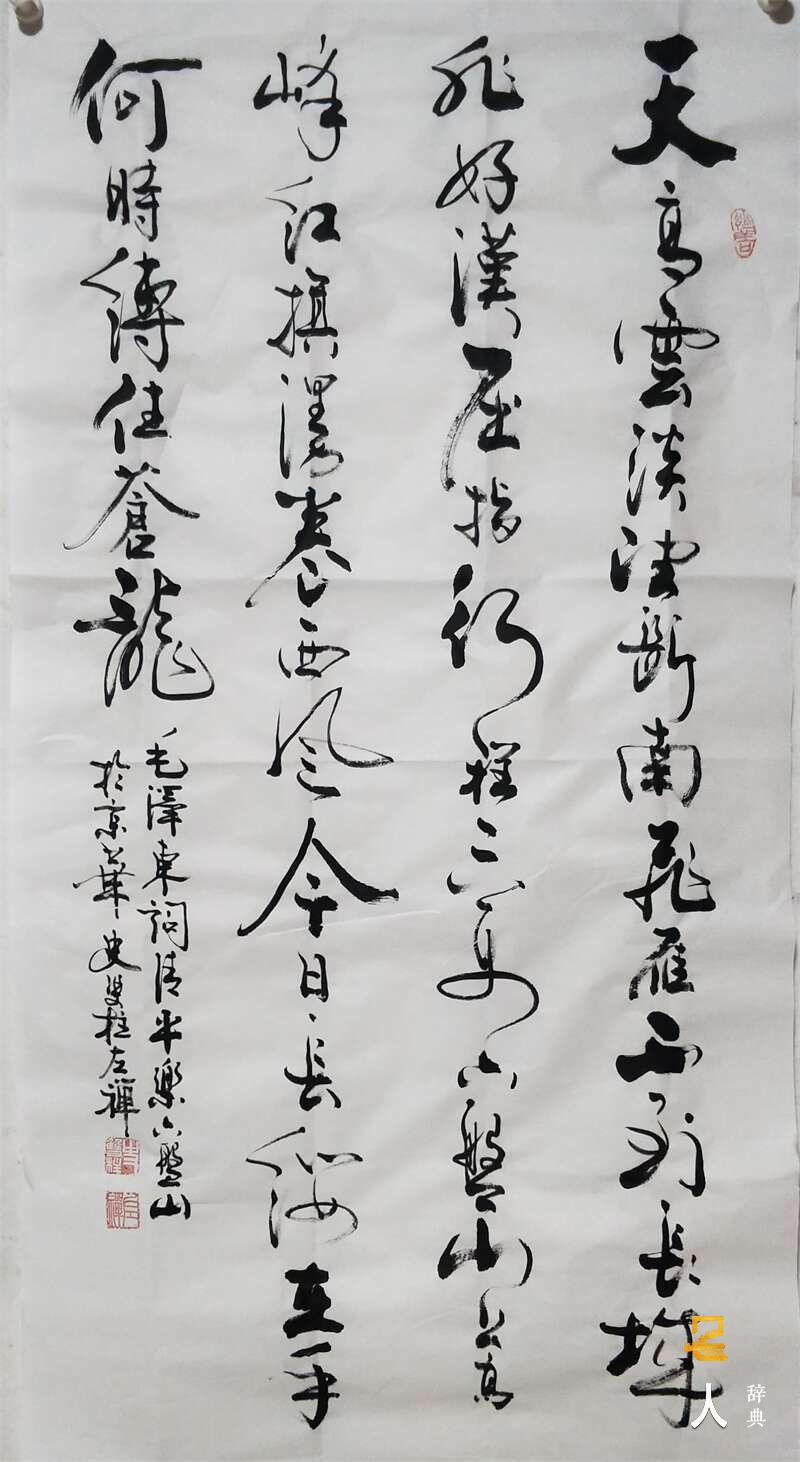 天高雲淡望斷南飛雁不到長城
非好漢屈指行程二萬六盤山上高
峰紅旗漫卷西風今日長纓在手
何時縛住蒼龍
毛澤東詞清平樂六盤山
於京華史柱左禪
名人
辞典